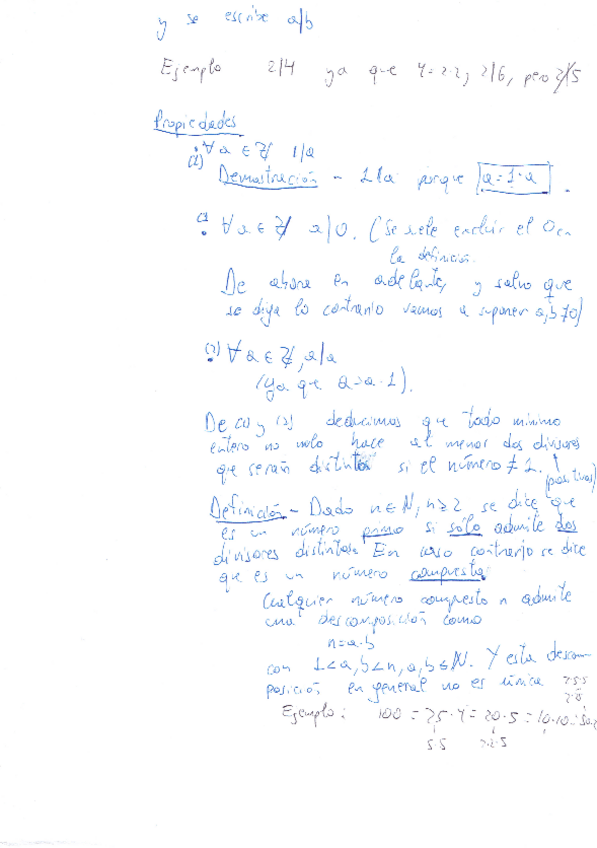 y se escribe a/b
Ejemplo 2/4 ya que 4=2·2, 2/6, pero 2∤5
Propiedades
(1) ∀a ∈ Z 1/a
Demostración - 1/a porque a=1·a.
∀a ∈ Z a/0. (Se suele excluir el 0 en
la definición.
De ahora en adelante, y salvo que
se diga lo contrario vamos a suponer a,b≠0)
(2) ∀a ∈ Z, a/a
(ya que a=a·1).
De (1) y (2) deducimos que todo
entero no nulo hace al menos dos divisores
que serán distintos si el número ≠ 1.
(positivos)
Definición - Dado n∈N, n≥2 se dice que
es un número primo si sólo admite dos
divisores distintos. En caso contrario se dice
que es un número compuesto
Cualquier número compuesto n admite
una descomposición como
n=a·b
con 1<a,b<n, a,b∈N. Y esta descom-
posición en general no es única
Ejemplo: 100 = 25·4 = 20·5 = 10·10 = 50·2
5·5 2·2·5